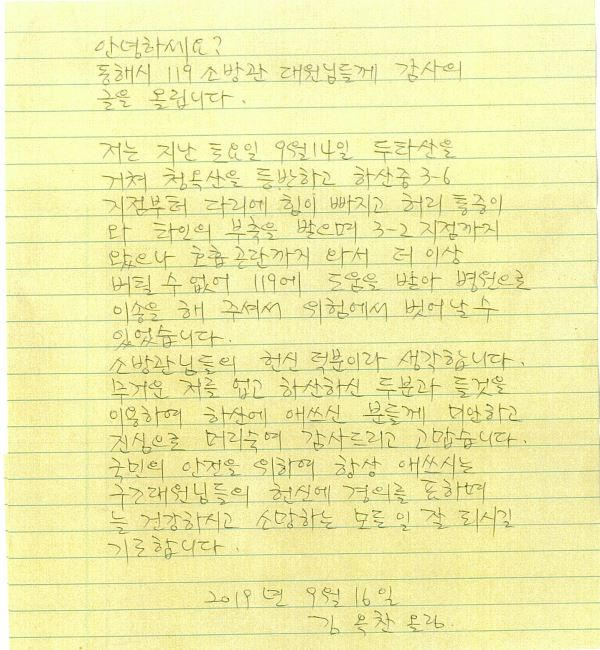 안녕하세요?
동해시 119 소방관 대원님들께 감사의
글을 올립니다.
저는 지난 토요일 9월14일 두타산을
거쳐 청옥산을 등반하고 하산중 3-6
지점부터 다리에 힘이 빠지고 허리 통증이
와 타인의 부축을 받으며 3-2 지점까지
왔으나 호흡곤란까지 와서 더 이상
버틸 수 없어 119에 도움을 받아 병원으로
이송을 해 주셔서 위험에서 벗어날 수
있었습니다.
소방관님들의 헌신 덕분이라 생각합니다.
무거운 저를 업고 하산하신 두분과 들것을
이용하여 하산에 애쓰신 분들께 미안하고
진심으로 머리숙여 감사드리고 고맙습니다.
국민의 안전을 위하여 항상 애쓰시는
구조대원님들의 헌신에 경의를 표하며
늘 건강하시고 소망하는 모든 일 잘 되시길
기도합니다.
2019년 9월 16일
김옥찬 올림.